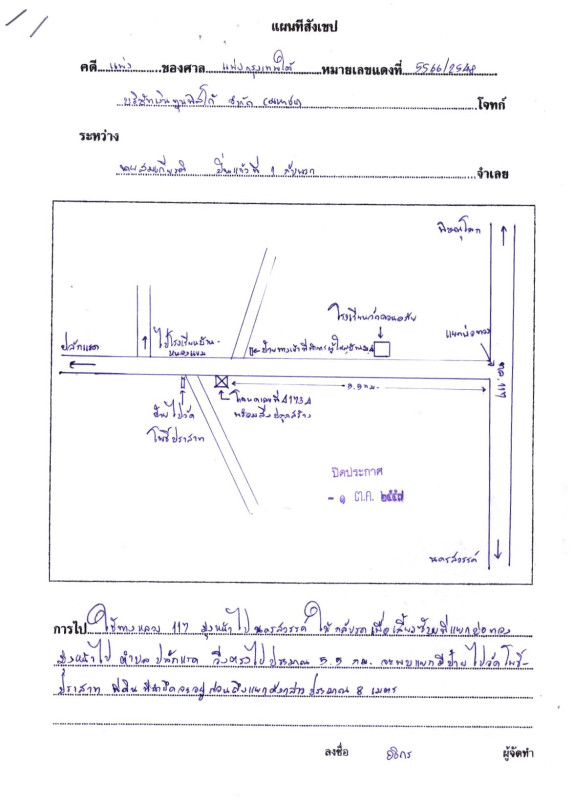 แผนที่สังเขป
คดี แพ่ง ของศาล แพ่งกรุงเทพใต้ หมายเลขแดงที่ 5566/2548
จำกัด (มหาชน) โจทก์
ระหว่าง
นายสมเกียรติ ที่ 1 กับพวก จำเลย
พิษณุโลก
โรงเรียนวัด
ไปโรงเรียนบ้าน-
หนองแขม
ปลักแรด
แยกบ่อทอง
ทล.117
5.5 กม.
ป้ายไปวัด
โพธิ์ปราสาท
โฉนดเลขที่
พร้อมสิ่งปลูกสร้าง
ปิดประกาศ
- ๑ ต.ค. ๒๕๕๗
นครสวรรค์
การไป ใช้ทางหลวง 117 มุ่งหน้าไป นครสวรรค์ ให้กลับรถเพื่อเลี้ยวซ้ายที่แยกบ่อทอง
มุ่งหน้าไป ตำบล ปลักแรด วิ่งตรงไปประมาณ 5.5 กม. จะพบแยกมีป้ายไปวัดโพธิ์-
ปราสาท ที่ดินที่นำยึดจะอยู่ก่อนถึงแยกดังกล่าวประมาณ 8 เมตร
ลงชื่อ ผู้จัดทำ